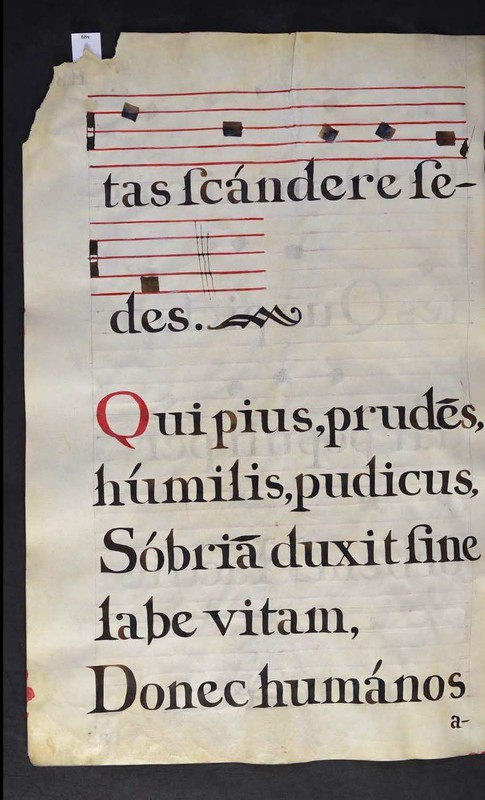 tas ſcándere ſe-
des.
Qui pius, prudēs,
húmilis, pudicus,
Sóbriā duxit ſine
labe vitam,
Donec humános
a-